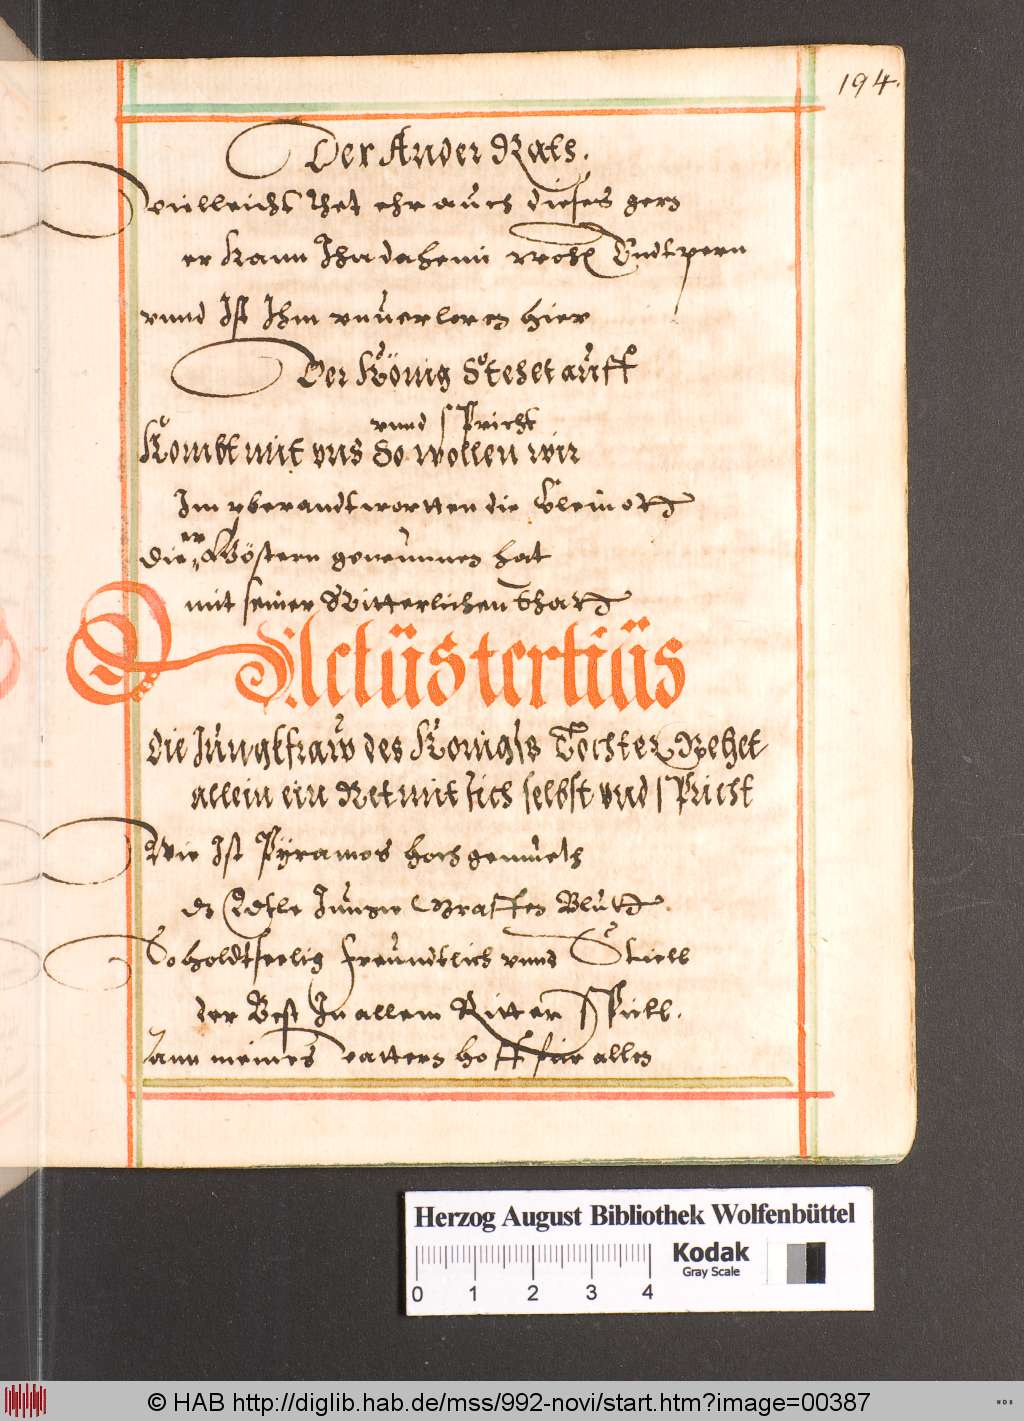 194.
Der Ander Rats.
villeicht thet ehr auch dieses gern
er kann Ihn daheim wohl Endtpern
vnnd Ist Ihm vnuerloren hier
Der König Stehet auff
vnnd spricht
Kombt mit vns So wollen wir
Im yberandtwortten die Cleinott
er
die Göstern genummen hat
mit seiner Ritterlichen thatt
Actus tertius
Die Jungkfraw des Konigks Tochter Gehet
allein ein Ret mit sich selbst vnd spricht
Wie Ist Pÿramos hochgemueth
dz Edtle Junge Graffen Bluett
So holdtseelig freundtlich vnnd Stiell
der Best In allem Ritter Spill.
Kann meines vatters hoff für allen
Herzog August Bibliothek Wolfenbüttel
Kodak
Gray Scale
0 1 2 3 4
© HAB http://diglib.hab.de/mss/992-novi/start.htm?image=00387